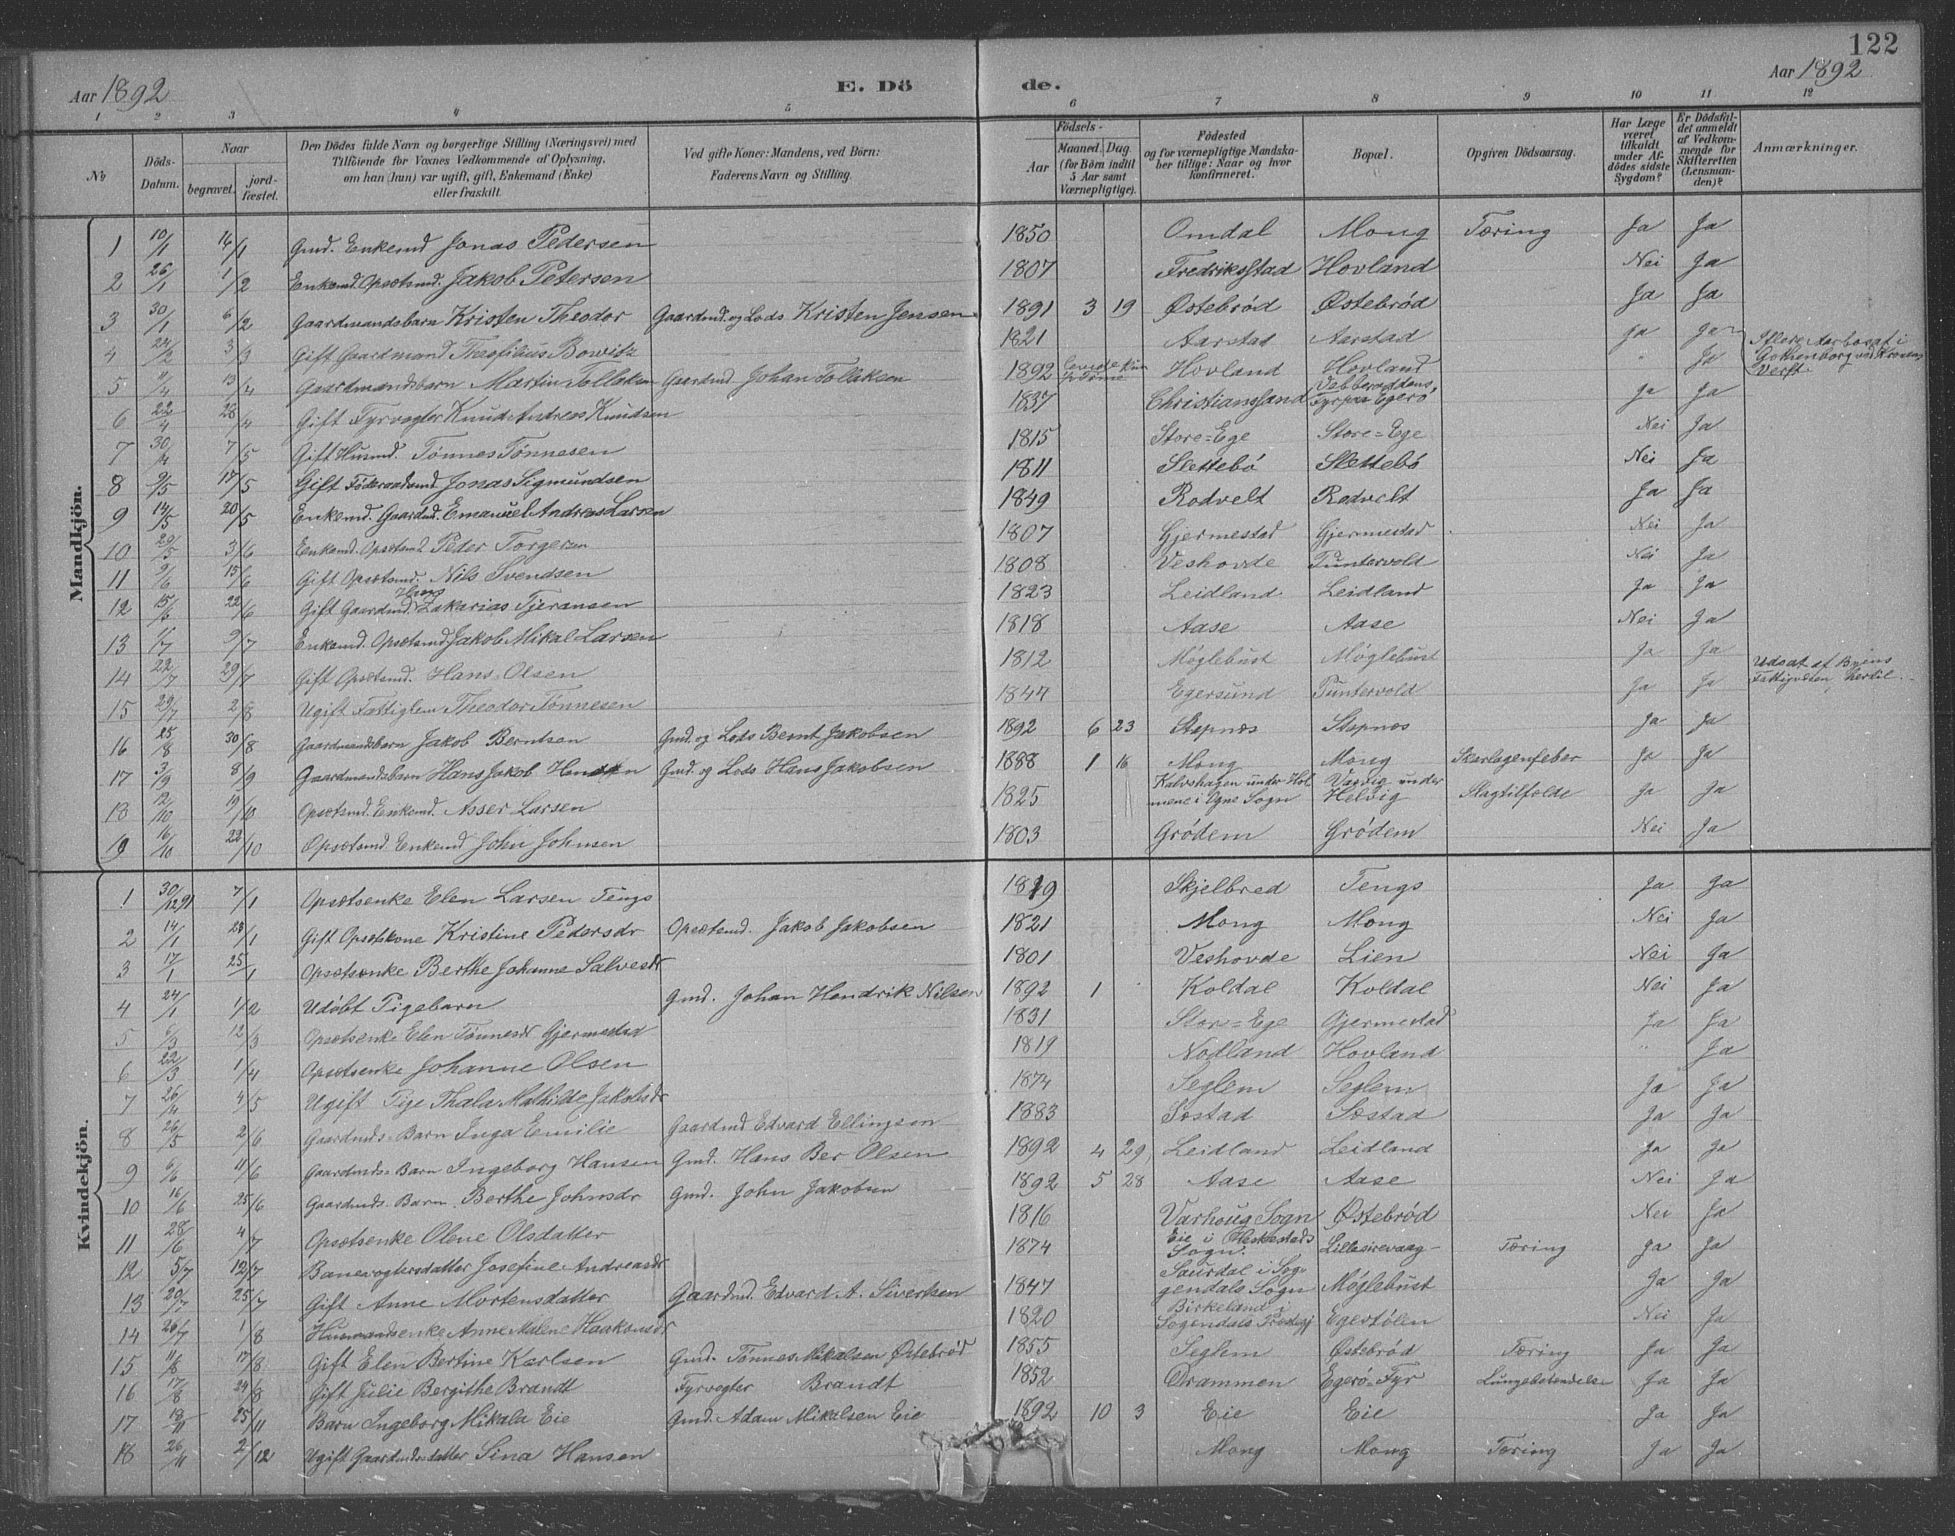 122
Aar 1892 E. Dö de. Aar 1892
1 2 3 4 5 6 7 8 9 10 11 12
No
Döds-Datum.
Naar
begravet.
jord-fæstet.
Den Dödes fulde Navn og borgerlige Stilling (Næringsvei) med
Tilföiende for Voxnes Vedkommende af Oplysning,
om han (hun) var ugift, gift, Enkemand (Enke)
eller fraskilt.
Ved gifte Koner: Mandens, ved Börn:
Faderens Navn og Stilling.
Födsels-
Aar
Maaned. Dag.
(for Börn indtil
5 Aar samt
Værnepligtige).
Födested
og for værnepligtige Mandska-
ber tillige: Naar og hvor
konfirmeret.
Bopæl.
Opgiven Dödsaarsag.
Har Læge
været
tilkaldt
under Af-
dödes sidste
Sygdom?
Er Dödsfal-
det anmeldt
af Vedkom-
mende for
Skifteretten
(Lensman-
den)?
Anmærkninger.
Mandkjön.
1 10/1 14/1 Gmd. Enkemd Jonas Pedersen 1850 Omdal Mong Tæring Ja Ja
2 26/1 1/2 Enkemd. Opsætsmd. Jakob Petersen 1807 Fredriksstad Hovland Nei Ja
3 30/1 6/2 Gaardmandsbarn Kristen Theodor Gaardmd. og Lods Kristen Jensen 1891 3 19 Østebrød Østebrød Ja Ja
4 24/2 3/3 Gift Gaardmand Theofilius Bowitz 1821 Aarstad Aarstad Ja Ja
5 11/4 13/4 Gaardmandsbarn Martin Tollaksen Gaardmd Johan Tollaksen 1892 Hovland Hovland " Ja
6 22/4 28/4 Gift Fyrvogter Knud Andreas Knudsen 1837 Christianssand Fyrpaa Egerø Ja Ja
7 30/4 7/5 Gift Husmd. Tønnes Tønnesen 1815 Store=Ege Store=Ege Nei Ja
8 9/5 17/5 Gift Föderaadsmd Jonas Sigmundsen 1811 Slettebó Slettebó Nei Ja
9 14/5 20/5 Enkemd. Gaardmd. Emanuel Andreas Larsen 1849 Rodvelt Rodvelt Ja Ja
10 29/5 3/6 Enkemd. Opsætsmd Peder Torgersen 1807 Gjermestad Gjermestad Nei Ja
11 9/6 15/6 Gift Opsætsmd. Nils Svendsen 1808 Veshovde Puntervold Nei Ja
12 15/6 22/6 Gift Gaardmd. Zakarias Tjeransen 1823 Leidland Leidland Ja Ja
13 1/7 9/7 Enkemd. Opsætsmd Jakob Mikal Larsen 1818 Aase Aase Nei Ja
14 22/7 29/7 Gift Opsætsmd. Hans Olsen 1812 Møglebust Møglebust Ja Ja
15 29/7 2/8 Ugift Fattiglem Theodor Tønnesen 1847 Egersund Puntervold Ja Ja Udsat af Byens Fattigvæsen hertil.
16 25/8 30/8 Gaardmandsbarn Jakob Berntsen Gmd. og Lods Bernt Jakobsen 1892 6 23 Stapnæs Stapnæs Ja Ja
17 3/9 8/9 Gaardmandsbarn Hans Jakob Hansen Gmd. og Lods Hans Jakobsen 1888 1 16 Mong Mong Skarlagenfeber Ja Ja
18 12/10 19/10 Opsætsmd. Enkemd. Asser Larsen 1825 Kalvshagen under Hol- mene i Ogne Sogn under Helvig Slagtilfælde Ja Ja
19 16/10 22/10 Opsætsmd. Enkemd John Johnsen 1803 Grødem Grødem Nei Ja
Kvindekjön.
1 30/12 91 7/1 Opsætsenke Elen Larsen Tengs 1819 Skjelbred Tengs Ja Ja
2 14/1 23/1 Gift Opsætskone Kristine Pedersdr Opsætsmd. Jakob Jakobsen 1821 Mong Mong Nei Ja
3 17/1 25/1 Opsætsenke Berthe Johanne Salvesdr 1801 Veshovde Lien Nei Ja
4 24/1 1/2 Udøbt Pigebarn Gmd. Johan Hendrik Nilsen 1892 1 Koldal Koldal Nei Ja
5 6/3 12/3 Opsætsenke Elen Tønnesdr Gjermestad 1831 Stor=Ege Gjermestad Ja Ja
6 22/3 1/4 Opsætsenke Johanne Olsen 1819 Nodland Hovland " Ja
7 26/4 4/5 Ugift Pige Thala Mathilde Jakobsdr 1874 Seglem Seglem Ja Ja
8 26/5 2/6 Gaardmds. Barn Inga Emilie Gaardmd Edvard Ellingsen 1883 Sæstad Sæstad Ja Ja
9 6/6 11/6 Gaardmds. Barn Ingeborg Hansen Gmd. Hans Ber Olsen 1892 4 29 Leidland Leidland Ja Ja
10 16/6 25/6 Gaardmds. Barn. Berthe Johnsdr Gmd. John Jakobsen 1892 5 28 Aase Aase Nei Ja
11 28/6 4/7 Opsætsenke Olene Olsdatter 1816 Varhoug Sogn Østebrød Nei Ja
12 5/7 12/7 Banevogtersdatter Josefine Andreasdr 1874 Eie i Heskestads Sogn. Lillesirevaag Tæring Ja Ja
13 20/7 25/7 Gift Anne Mortensdatter Gaardmd. Edvard A. Sivertsen 1847 Saurdal i Sog- gendals Sogn Møglebust Ja Ja
14 26/7 1/8 Husmandsenke Anne Malene Haakonsdr 1820 Birkeland i Sogendals Prestegj Egestølen Nei Ja
15 11/8 17/8 Gift Elen Bertine Karlsen Gmd. Tønnes Mikalsen Østebrød 1855 Seglem Østebrød Tæring Ja Ja
16 17/8 24/8 Gift Julie Bergithe Brandt Fyrvogter Brandt 1852 Drammen Egerø=Fyr Lungebetendelse Ja Ja
17 18/11 25/11 Barn Ingeborg Mikala Eie Gmd. Adam Mikalsen Eie 1892 10 3 Eie Eie Ja Ja
18 26/11 2/12 Ugift Gaardmdsdatter Sina Hansen Mong Mong Tæring Ja Ja